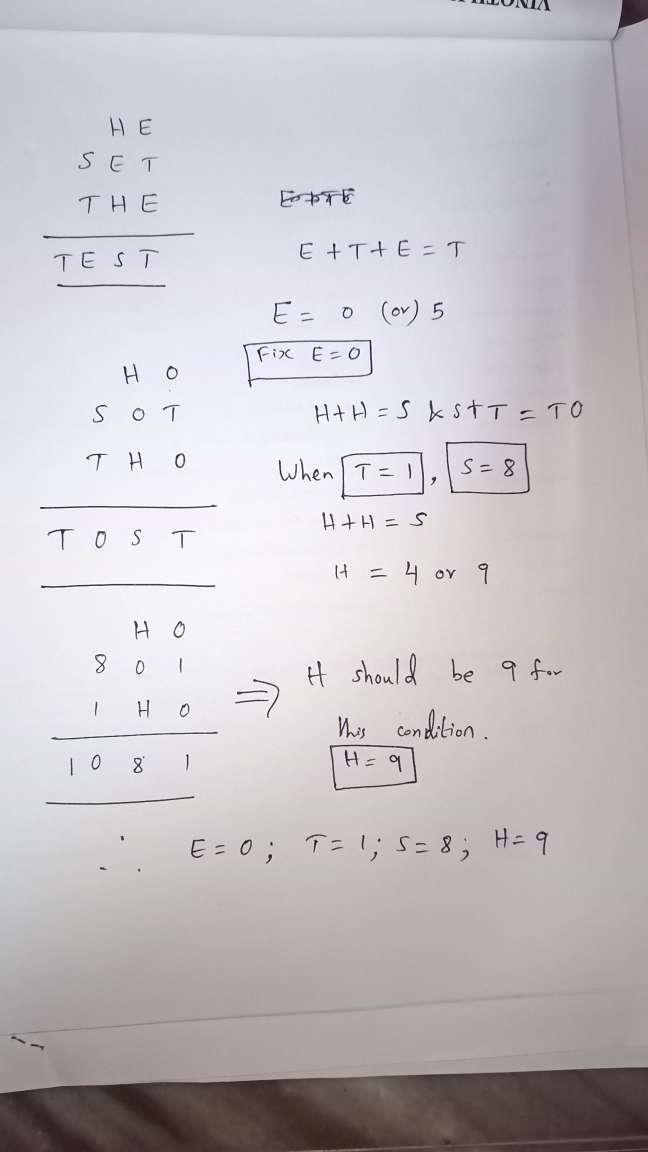 H E
S E T
T H E
T E S T
E + T + E = T
E = 0 (or) 5
Fix E = 0
H O
S O T
T H O
T O S T
H + H = S & S + T = T O
When T = 1 , S = 8
H + H = S
H = 4 or 9
H O
8 0 1
1 H 0
1 0 8 1
⇒ H should be 9 for
this condition.
H = 9
∴ E = 0 ; T = 1 ; S = 8 ; H = 9